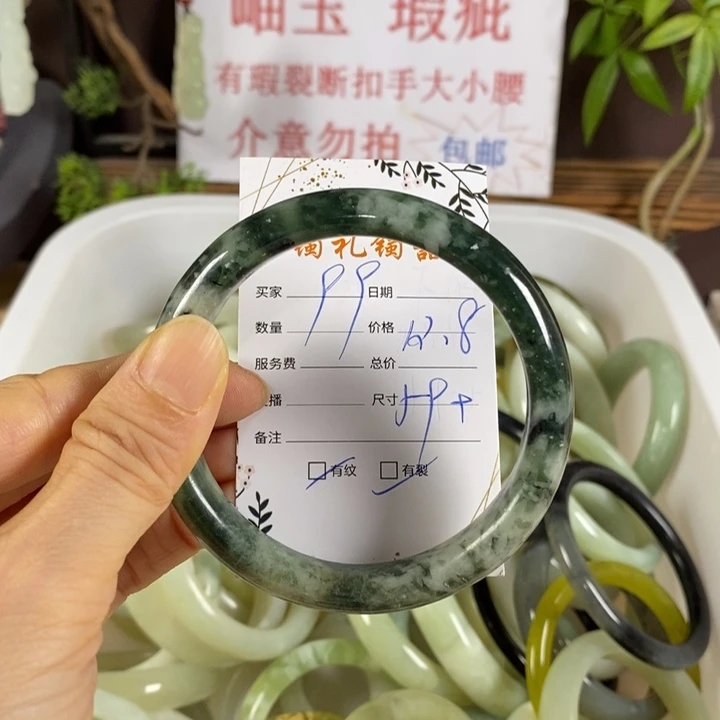 岫玉 瑕疵
有瑕裂断扣手大小腰
介意勿拍 包邮
买家 99 日期
数量 价格 12.8
服务费 总价
播 尺寸 59+
备注
有纹 有裂